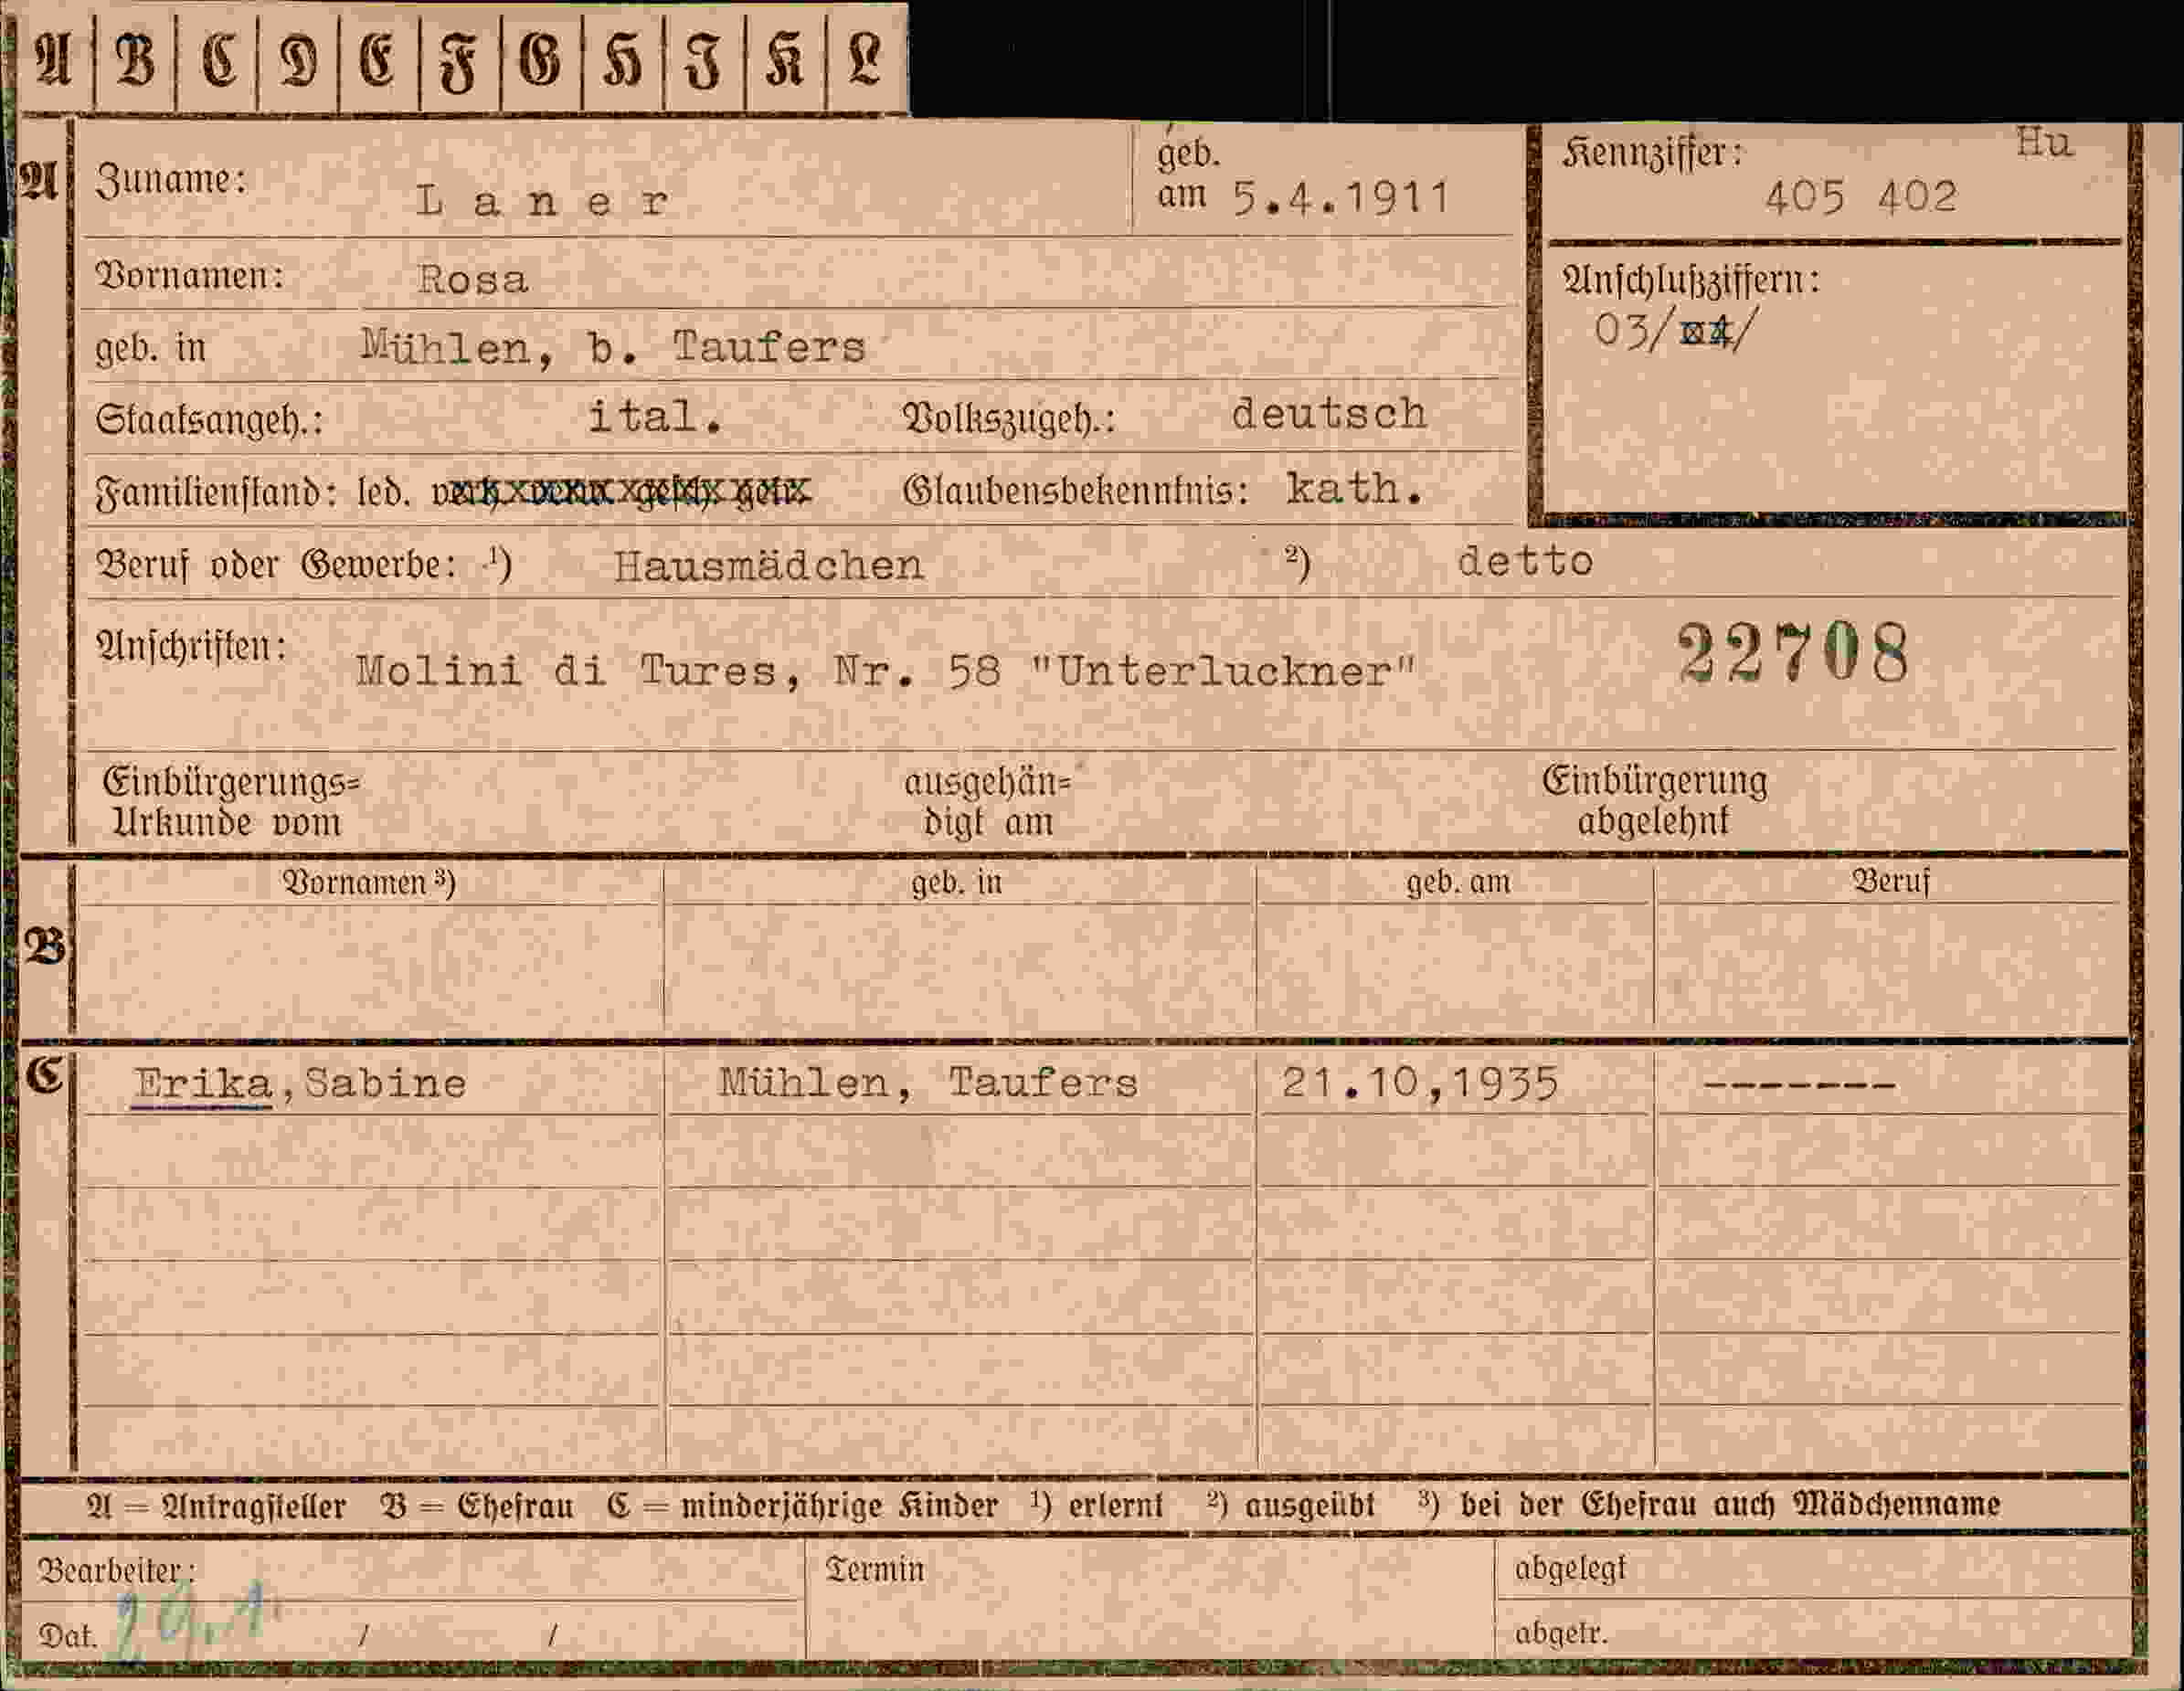 A B C D E F G H I K L
A Zuname: Laner geb. am 5.4.1911 Kennziffer: Hu
405 402
Vornamen: Rosa Anschlußziffern:
geb. in Mühlen, b. Taufers 03/
Staatsangeh.: ital. Volkszugeh.: deutsch
Familienstand: led. Glaubensbekenntnis: kath.
Beruf oder Gewerbe: ¹) Hausmädchen ²) detto
Anschriften: Molini di Tures, Nr. 58 "Unterluckner" 22708
Einbürgerungs= ausgehän= Einbürgerung
Urkunde vom digt am abgelehnt
Vornamen ³) geb. in geb. am Beruf
B
C Erika,Sabine Mühlen, Taufers 21.10,1935 -------
A = Antragsteller B = Ehefrau C = minderjährige Kinder ¹) erlernt ²) ausgeübt ³) bei der Ehefrau auch Mädchenname
Bearbeiter: Termin abgelegt
Dat. 29.1 / / abgetr.